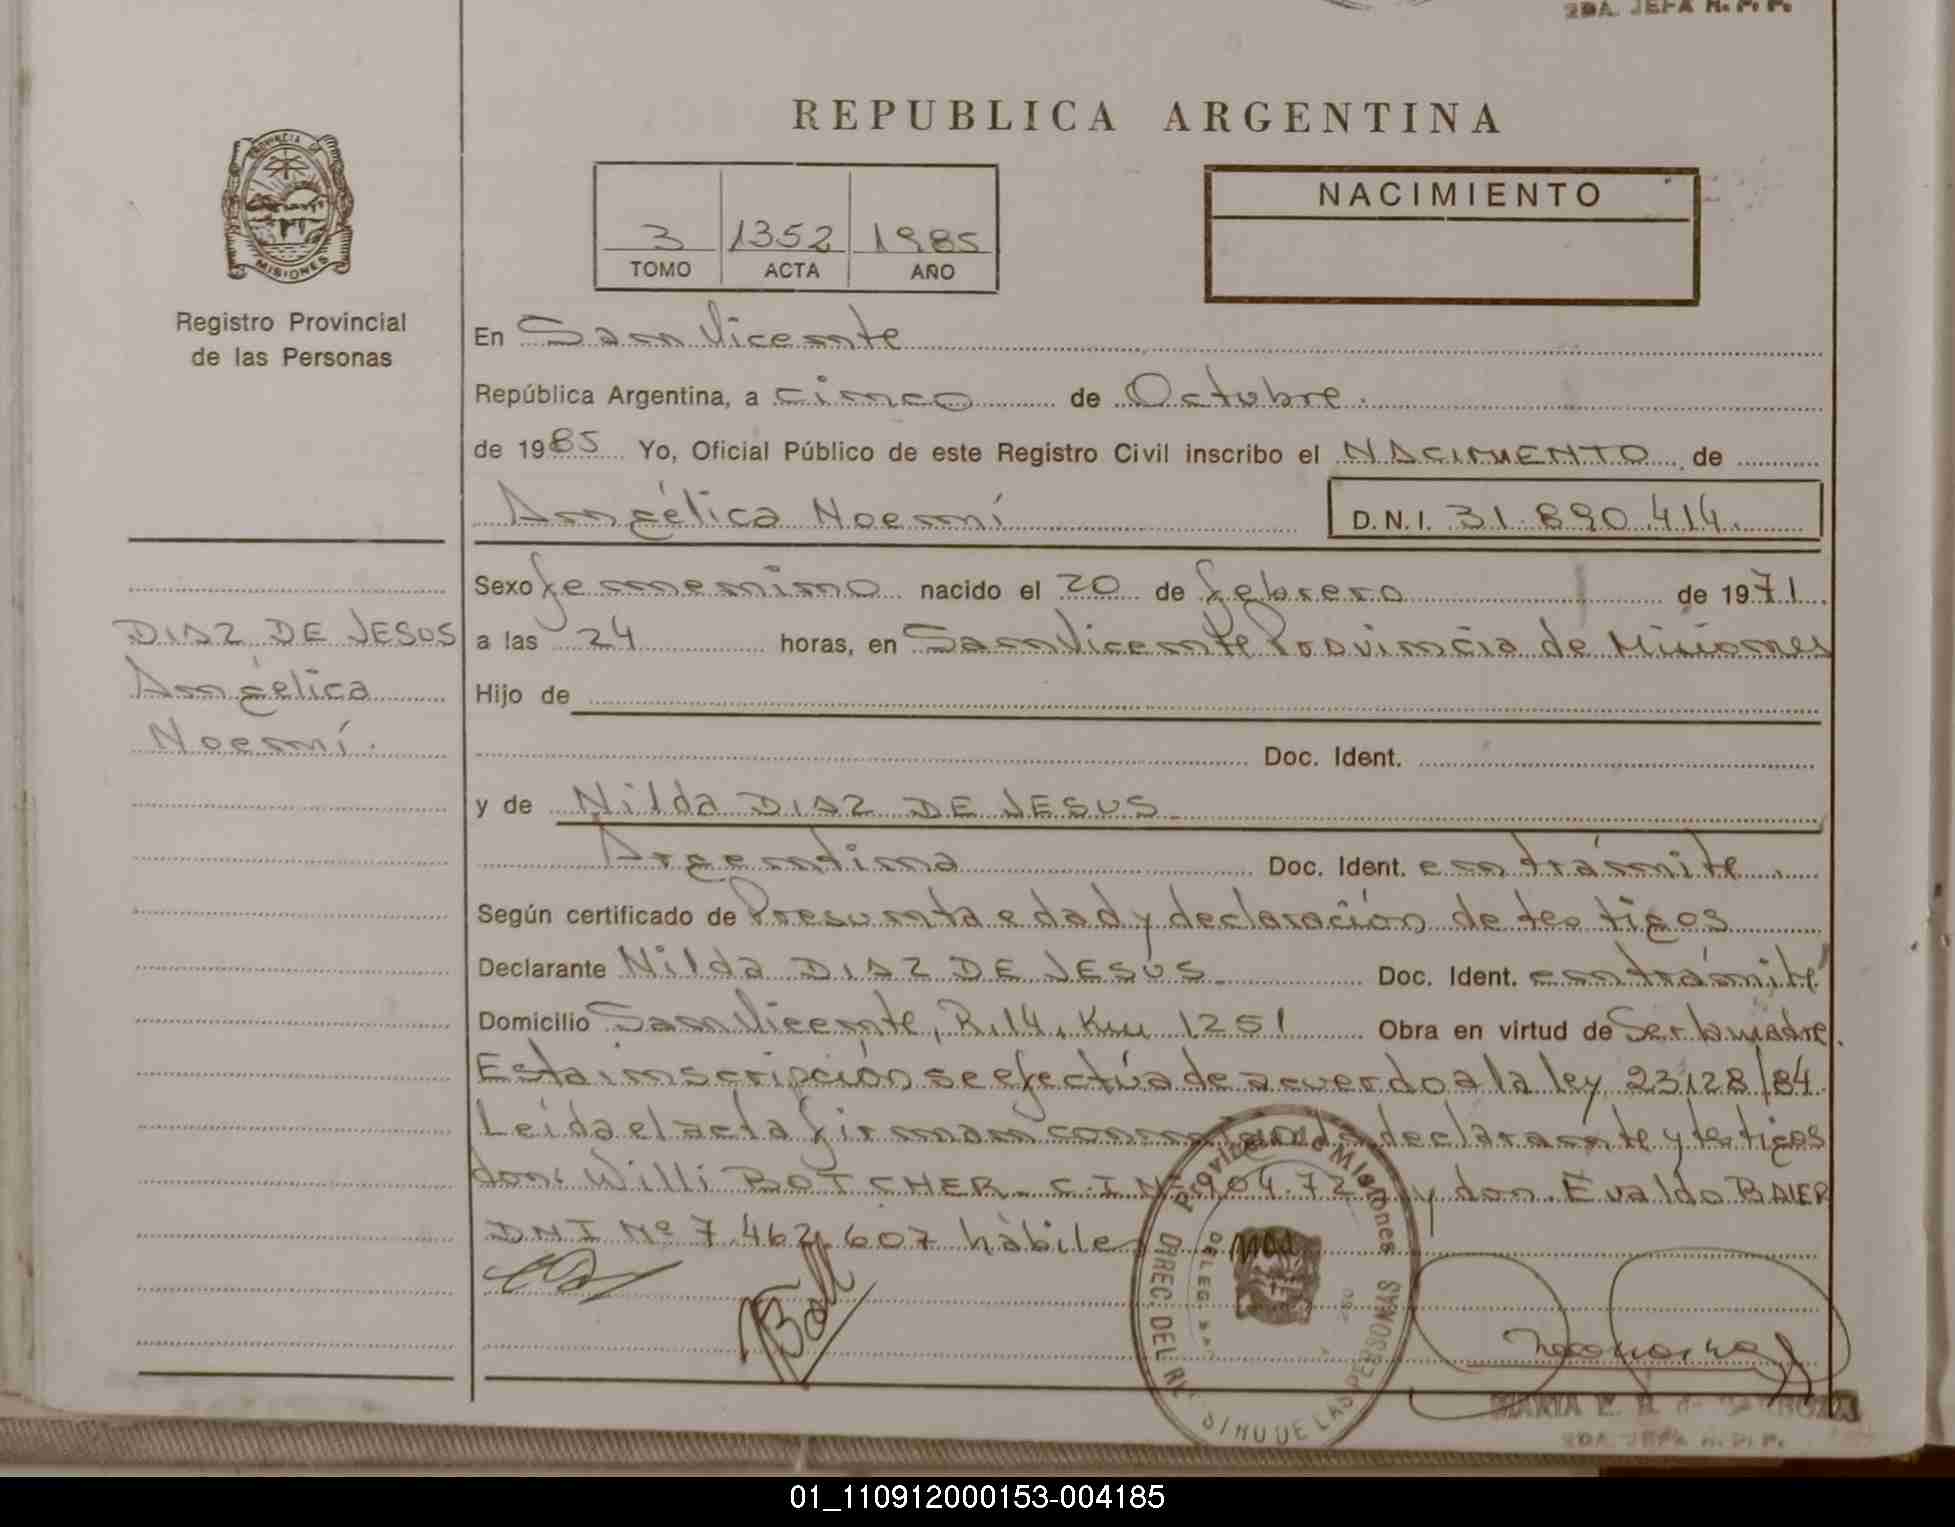 2DA. JEFA R. P. P.
REPUBLICA ARGENTINA
PROVINCIA DE
MISIONES
Registro Provincial
de las Personas
3 1352 1985
TOMO ACTA AÑO
NACIMIENTO
En San Vicente
República Argentina, a cinco de Octubre.
de 1985 Yo, Oficial Público de este Registro Civil inscribo el NACIMIENTO de
Angélica Noemí D.N.I. 31.890.414.
Sexo femenino nacido el 20 de febrero de 1971.
a las 24 horas, en San Vicente Provincia de Misiones
DIAZ DE JESUS
Angélica
Noemí.
Hijo de
Doc. Ident.
y de Nilda DIAZ DE JESUS
Argentina Doc. Ident. en trámite.
Según certificado de Presunta edad y declaración de testigos
Declarante Nilda DIAZ DE JESÚS Doc. Ident. en trámite
Domicilio San Vicente, R.14, Km 1251 Obra en virtud de Ser la madre.
Esta inscripción se efectúa de acuerdo a la ley 23128/84.
Leída el acta firman conmigo la declarante y testigos
don: Willi BOTCHER C.I Nº 90472 y don Evaldo BAIER
DNI Nº 7.462.607 hábiles
Provincia de Misiones
DIREC. DEL RE
DE LAS PERSONAS
DELEG.
MARIA E.
2DA. JEFA R. P. P.
01_110912000153-004185